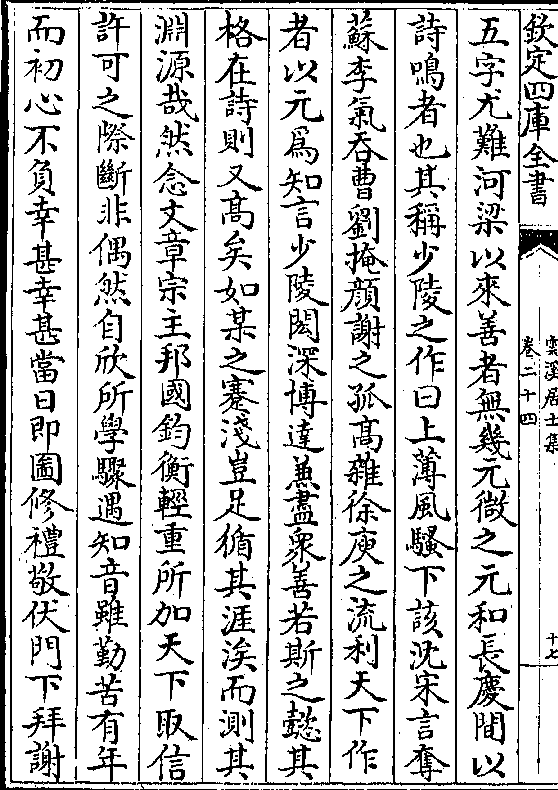 欽定四庫全書
雲溪居士集
卷二十四
十七
五字尤難河梁以來善者無幾元微之元和長慶間以
詩鳴者也其稱少陵之作曰上薄風騷下該沈宋言奪
蘇李氣吞曹劉掩顔謝之孤髙雜徐庾之流利天下作
者以元爲知言少陵閎深博達兼盡衆善若斯之懿其
格在詩則又髙矣如某之蹇淺豈足循其涯涘而測其
淵源哉然念文章宗主邦國鈞衡輕重所加天下取信
許可之際斷非偶然自欣所學驟遇知音雖勤苦有年
而初心不負幸甚幸甚當日即圖修禮敬伏門下拜謝